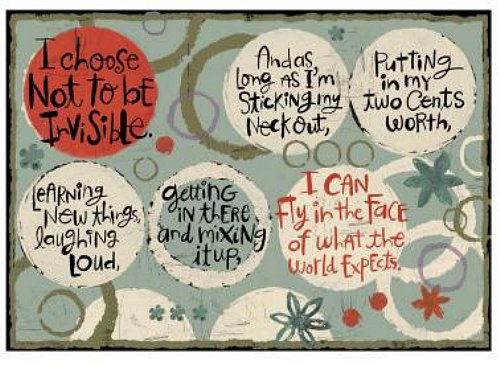 I choose
Not to be
Invisible.
And as
long as I'm
Sticking my
Neck out,
Putting
in my
two Cents
worth,
Learning
New things,
laughing
Loud,
getting
in there
and mixing
it up,
I CAN
Fly in the Face
of what the
world Expects.